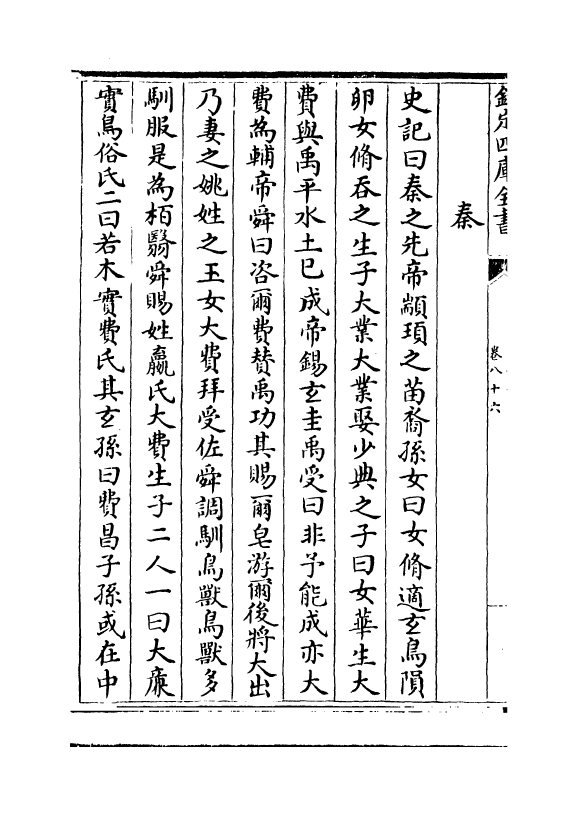 欽定四庫全書
卷八十六
秦
史記曰秦之先帝顓頊之苗裔孫女曰女脩適玄鳥隕
卵女脩吞之生子大業大業娶少典之子曰女華生大
費與禹平水土已成帝錫玄圭禹受曰非予能成亦大
費為輔帝舜曰咨爾費賛禹功其賜爾皂游爾後將大出
乃妻之姚姓之玉女大費拜受佐舜調馴鳥獸鳥獸多
馴服是為栢翳舜賜姓嬴氏大費生子二人一曰大廉
實鳥俗氏二曰若木實費氏其玄孫曰費昌子孫或在中